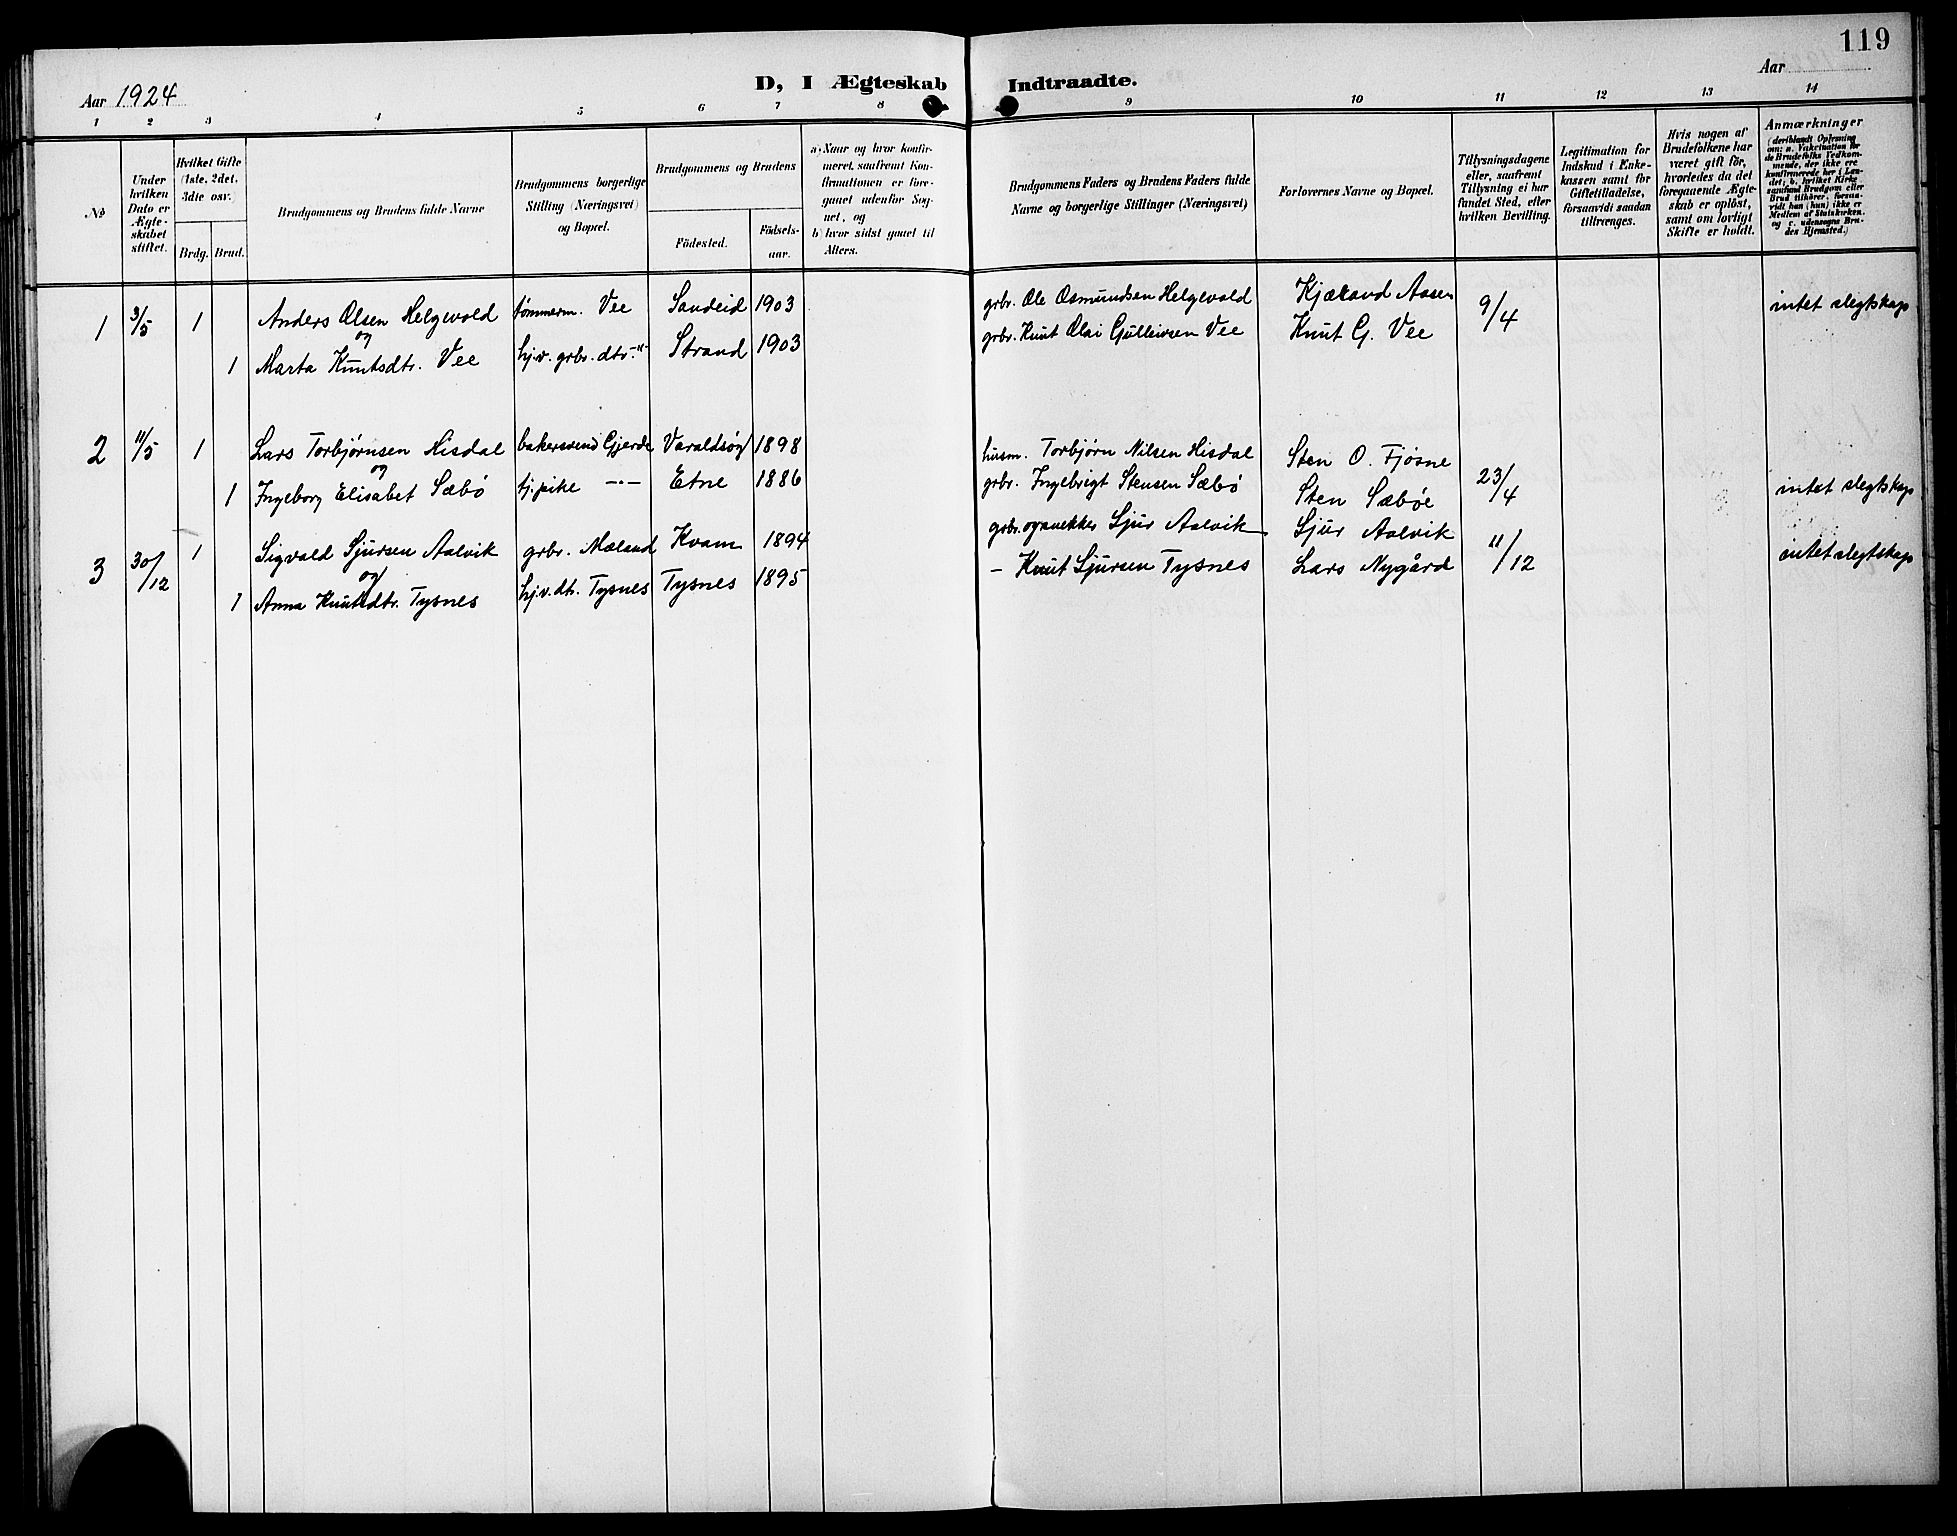 119
Aar 1924
D, I Ægteskab Indtraadte.
Aar
1 2 3 4 5 6 7 8 9 10 11 12 13 14
№
Under hvilken Dato er Ægteskabet stiftet.
Hvilket Gifte (1ste, 2det, 3die osv.)
Brdg. Brud.
Brudgommens og Brudens fulde Navne
Brudgommens borgerlige Stilling (Næringsvei) og Bopæl.
Brudgommens og Brudens
Födested.
Födselsaar.
a) Naar og hvor konfirmeret, saafremt Konfirmationen er foregaaet udenfor Sognet, og
b) hvor sidst gaaet til Alters.
Brudgommens Faders og Brudens Faders fulde Navne og borgerlige Stillinger (Næringsvei)
Forlovernes Navne og Bopæl.
Tillysningsdagene eller, saafremt Tillysning ei har fundet Sted, efter hvilken Bevilling.
Legitimation for Indskud i Enkekassen samt for Giftetilladelse, forsaavidt saadan tiltrænges.
Hvis nogen af Brudefolkene har været gift för, hvorledes da det foregaaende Ægteskab er oplöst, samt om lovligt Skifte er holdt.
Anmærkninger (deriblandt Oplysning om: a. Vakcination for de Brudefolks Vedkommende, der ikke ere konfirmerede her i Landet; b. hvilket Kirkesamfund Brudgom eller Brud tilhörer, forsaavidt han (hun) ikke er Medlem af Statskirken, og c. udensogns Brudes Hjemsted.)
1 3/5 1 Anders Olsen Helgevold tömmerm. Vee Sandeid 1903 grbr. Ole Osmundsen Helgevold Kjæland Aasen 9/4 intet slegtskap
og
1 Marta Knutsdtr. Vee hj.v. grbr. dtr. -"- Strand 1903 grbr. Knut Olai Gulleivsen Vee Knut G. Vee
2 11/5 1 Lars Torbjørnsen Hisdal bakersvend Gjerde Varaldsøy 1898 husm. Torbjørn Nilsen Hisdal Sten O. Fjøsne 23/4 intet slegtskap
og
1 Ingeborg Elisabet Sæbø tj.pike -"- Etne 1886 grbr. Ingebrigt Stensen Sæbø Sten Sæbøe
3 30/12 1 Sigvald Sjursen Aalvik grbr. Mæland Kvam 1894 grbr. og snekker Sjur Aalvik Sjur Aalvik 11/12 intet slegtskap
og
1 Anna Knutsdtr. Tysnes hj.v. dtr. Tysnes Tysnes 1895 - Knut Sjursen Tysnes Lars Nygård